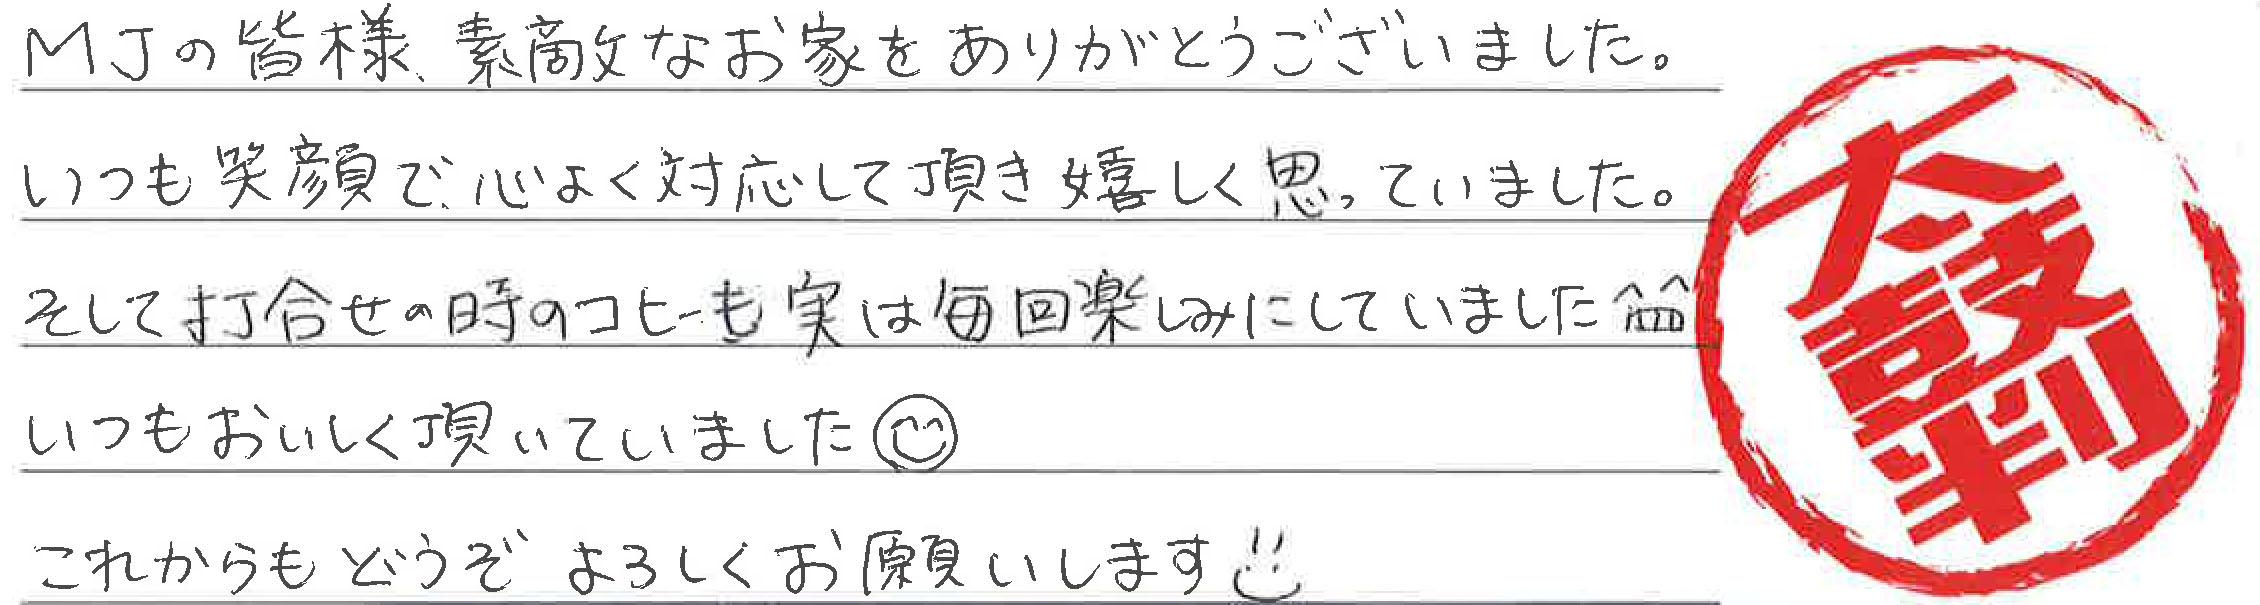 MJの皆様、素敵なお家をありがとうございました。
いつも笑顔で、心よく対応して頂き嬉しく思っていました。
そして打合せの時のコヒーも実は毎回楽しみにしていました^皿^
いつもおいしく頂いていました
これからもどうぞよろしくお願いします
太鼓判